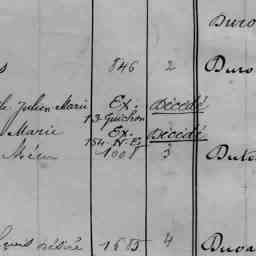 Duro
s 846 2 Duro
de Julien Marie Ex. Décédé
13 Guichon
Marie Ex. Décédé
154-N-Ez
1001 3 Dut
Louis Désiré 1585 4 Duva